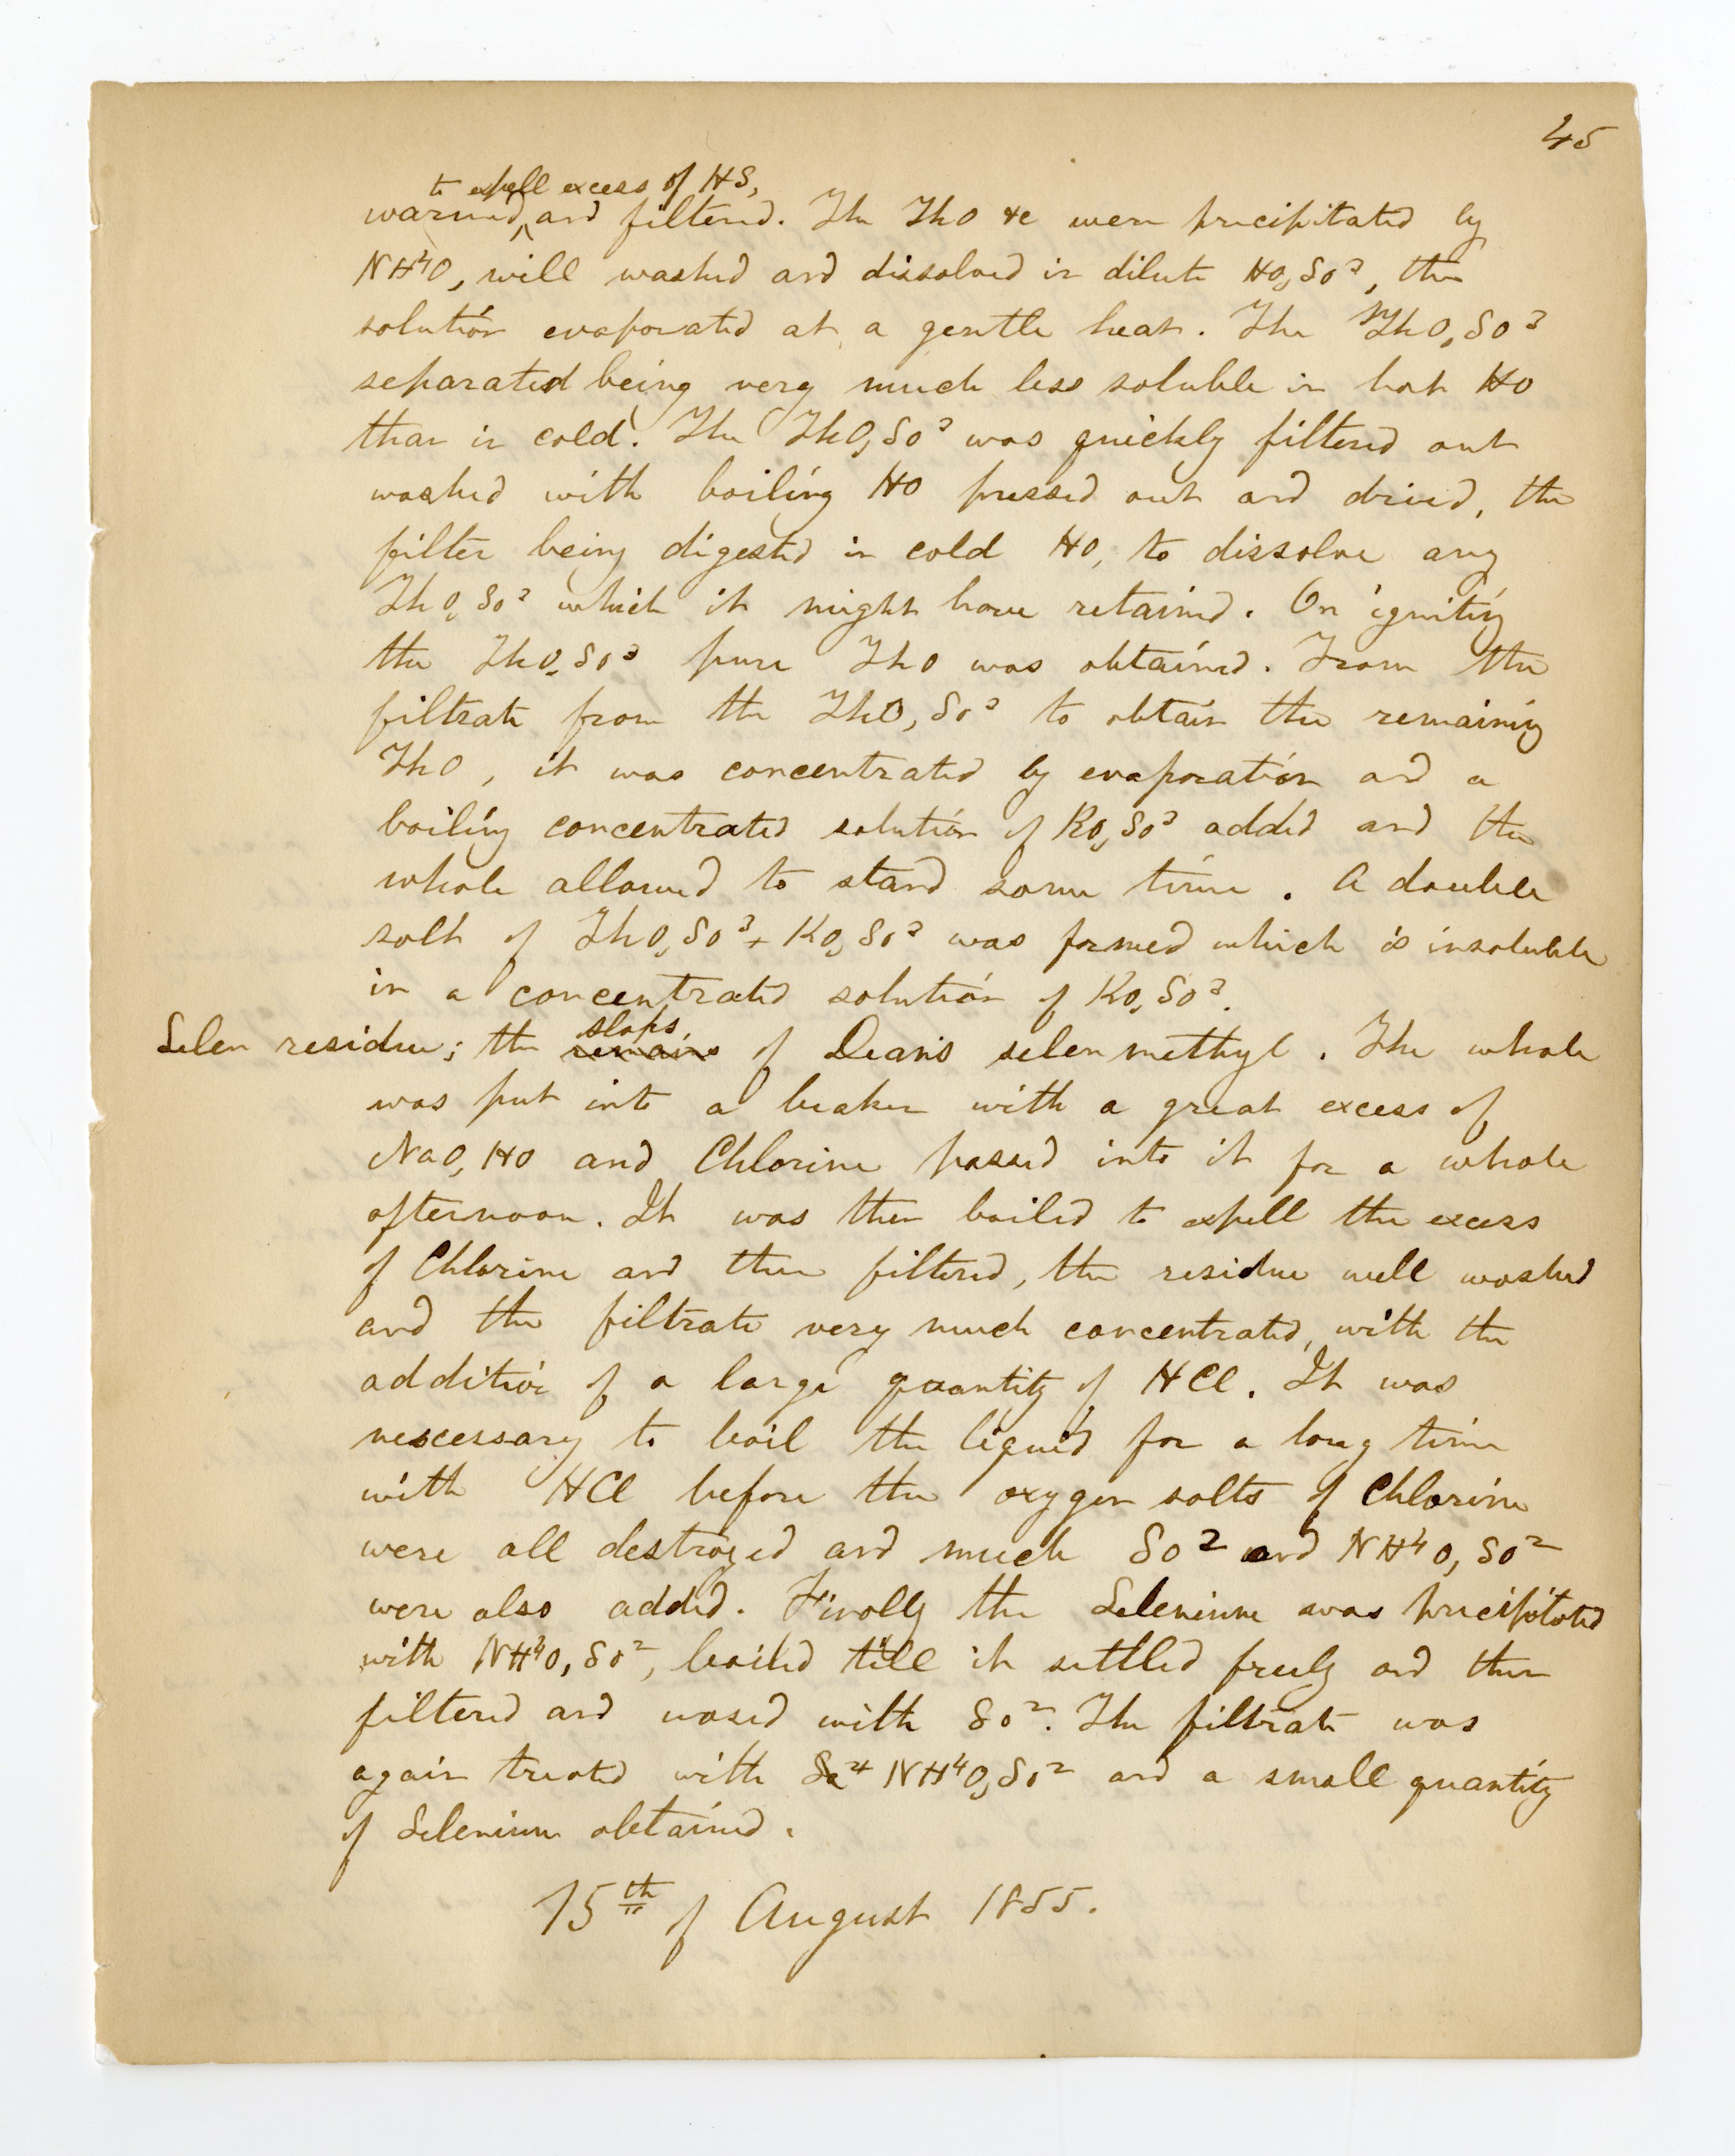 45
to expell excess of HS,
warmed, and filtered. The ThO &c were precipitated by
NH⁴O, well washed and dissolved in dilute HO,SO³, the
solution evaporated at a gentle heat. The ThO,SO³
separated being very much less soluble in hot HO
than in cold. The ThO,SO³ was quickly filtered out
washed with boiling HO pressed out and dried, the
filter being digested in cold HO, to dissolve any
ThO,SO³ which it might have retained. On igniting
the ThO,SO³ pure ThO was obtained. From the
filtrate from the ThO,SO³ to obtain the remaining
ThO, it was concentrated by evaporation and a
boiling concentrated solution of KO,SO³ added and the
whole allowed to stand some time. A double
salt of ThO,SO³ + KO,SO³ was formed which is insoluble
in a concentrated solution of KO,SO³.
slops
Selen residue; the remains of Dean's selenmethyl. The whole
was put into a beaker with a great excess of
NaO,HO and Chlorine passed into it for a whole
afternoon. It was then boiled to expell the excess
of Chlorine and then filtered, the residue well washed
and the filtrate very much concentrated, with the
addition of a large quantity of HCl. It was
nescessary to boil the liquid for a long time
with HCl before the oxygen salts of Chlorine
were all destroyed and much SO² and NH⁴O,SO²
were also added. Finally the Selenium was precipitated
with NH⁴O,SO², boiled till it settled freely and then
filtered and wased with SO². The filtrate was
again treated with NH⁴O,SO² and a small quantity
of Selenium obtained.
15th of August 1855.